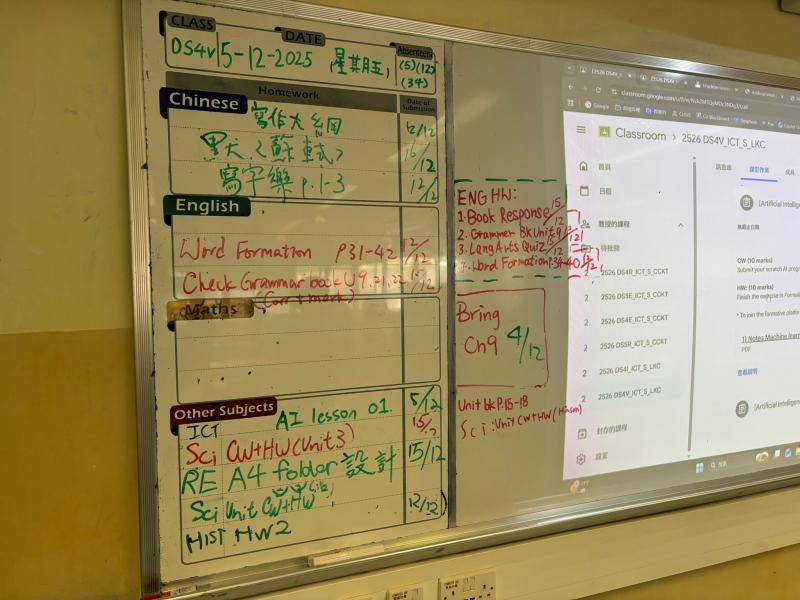 CLASS
DATE
Absentees
DS4V 5-12-2025 (星其月五) (5)(12)
(34)
Homework
Date of Submission
Chinese
寫作大綱 12/12
黑大〈蘇軾〉 16/12
寫字樂 p.1-3 12/12
English
Word Formation P31-42 12/12
Check Grammar book U9,21,22 15/12
(Corr + mark)
Maths
Other Subjects
ICT AI lesson 01. 5/12
Sci CW+HW(Unit3) 15/12
RE A4 folder 設計 15/12
Sci Unit CW+HW 12/12
HIST HW2
ENG HW:
1. Book Response 15/12
2. Grammer Bk Unit 9
3. Lang Arts Quiz 15/12
4. Word Formation P.34-40
Bring
Ch9 4/12
Unit bk P.15-18
Sci: Unit CW+HW (Hinson)
Classroom > 2526 DS4V_ICT_S_LKC
首頁
日曆
教授的課程
待批閱
2526 DS4R_ICT_S_CCKT
2526 DS5E_ICT_S_CCKT
2526 DS4E_ICT_S_CCKT
2526 DS5R_ICT_S_CCKT
2526 DS4I_ICT_S_LKC
2526 DS4V_ICT_S_LKC
封存的課程
設定
訊息串 課堂作業 成員
[Artificial Intelligence
無截止日期
CW (10 marks)
Submit your scratch AI program
HW: (10 marks)
Finish the exercise in Formati
* To join the formative platfor
1) Notes Machine learn
PDF
查看說明
[Artificial Intelligenc